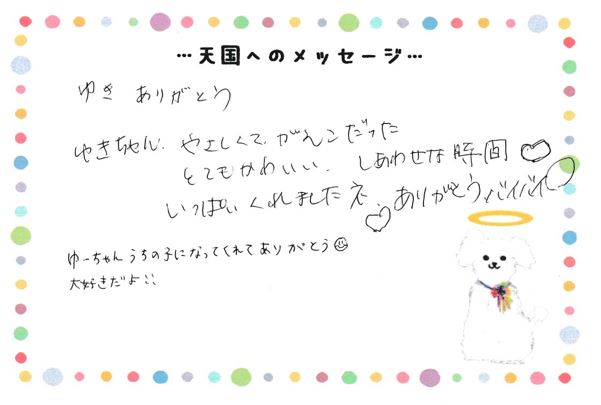 …天国へのメッセージ…
ゆき ありがとう
ゆきちゃん. やさしくて. がんこだった
とてもかわいい. しあわせな時間♡
いっぱいくれましたネ♡ ありがとうバイバイ
ゆーちゃん うちの子になってくれてありがとう☺
大好きだよ!!